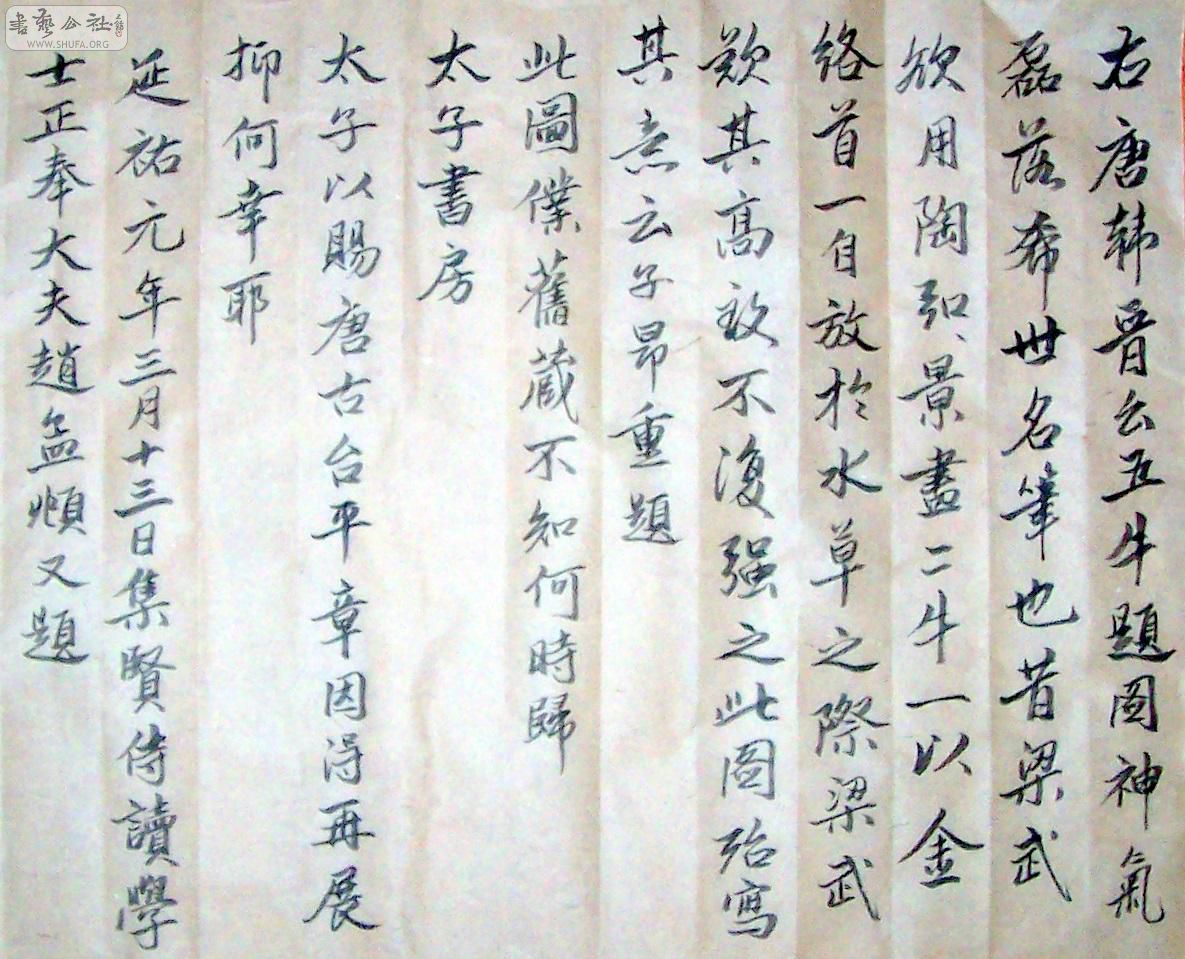 右唐韩晋公五牛題图神氣
磊落希世名筆也昔梁武
欲用陶弘景畫二牛一以金
络首一自放於水草之際梁武
歎其高致不復强之此图殆寫
其意云子昂重題
此圖僕舊蔵不知何時歸
太子書房
太子以賜唐古台平章因得再展
抑何幸耶
延祐元年三月十三日集賢侍讀學
士正奉大夫趙孟頫又題
書藝公社
WWW.SHUFA.ORG